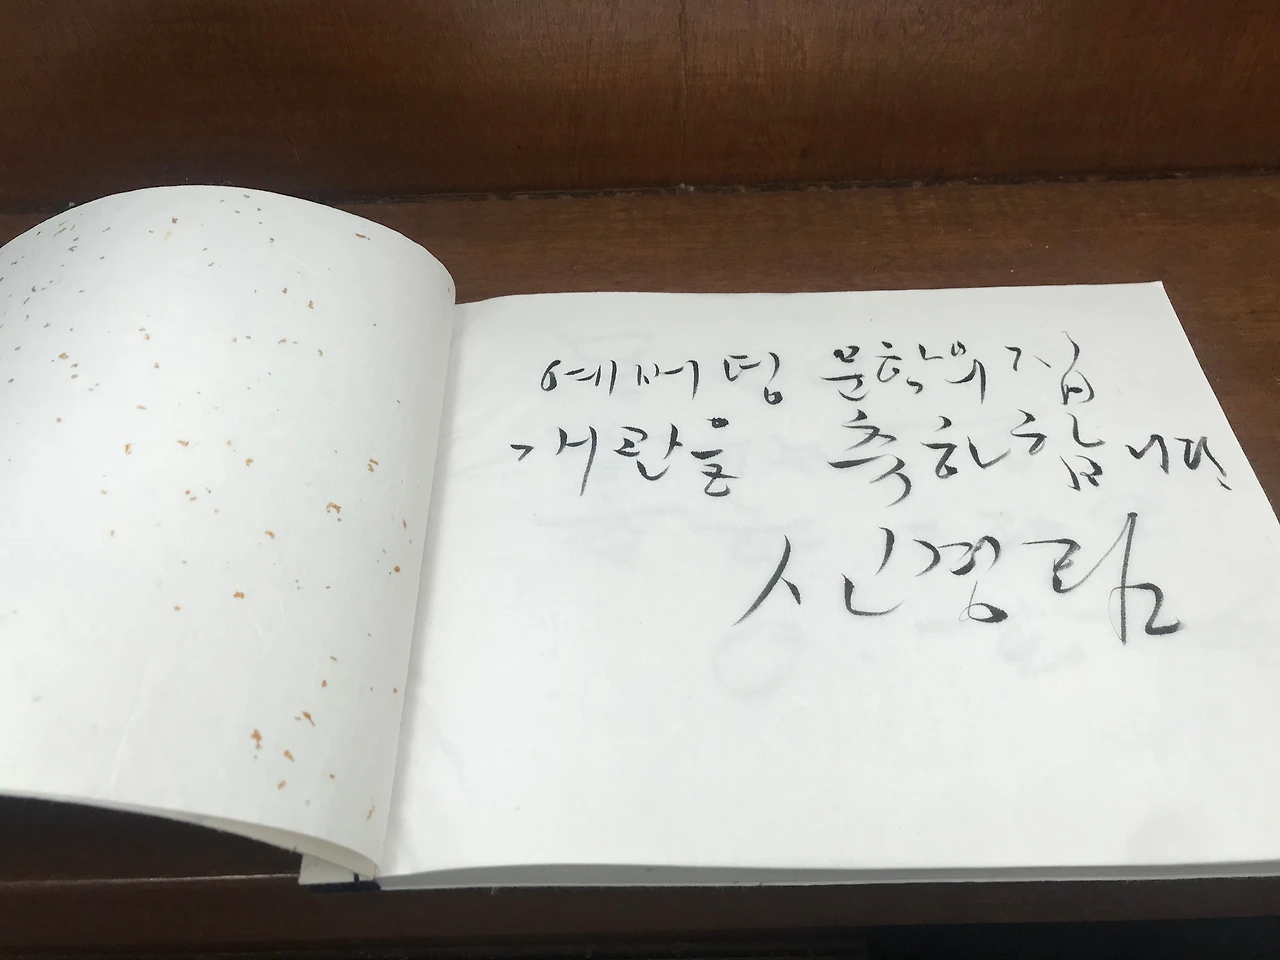 예버덩 문학의 집
개관을 축하합니다
신경림